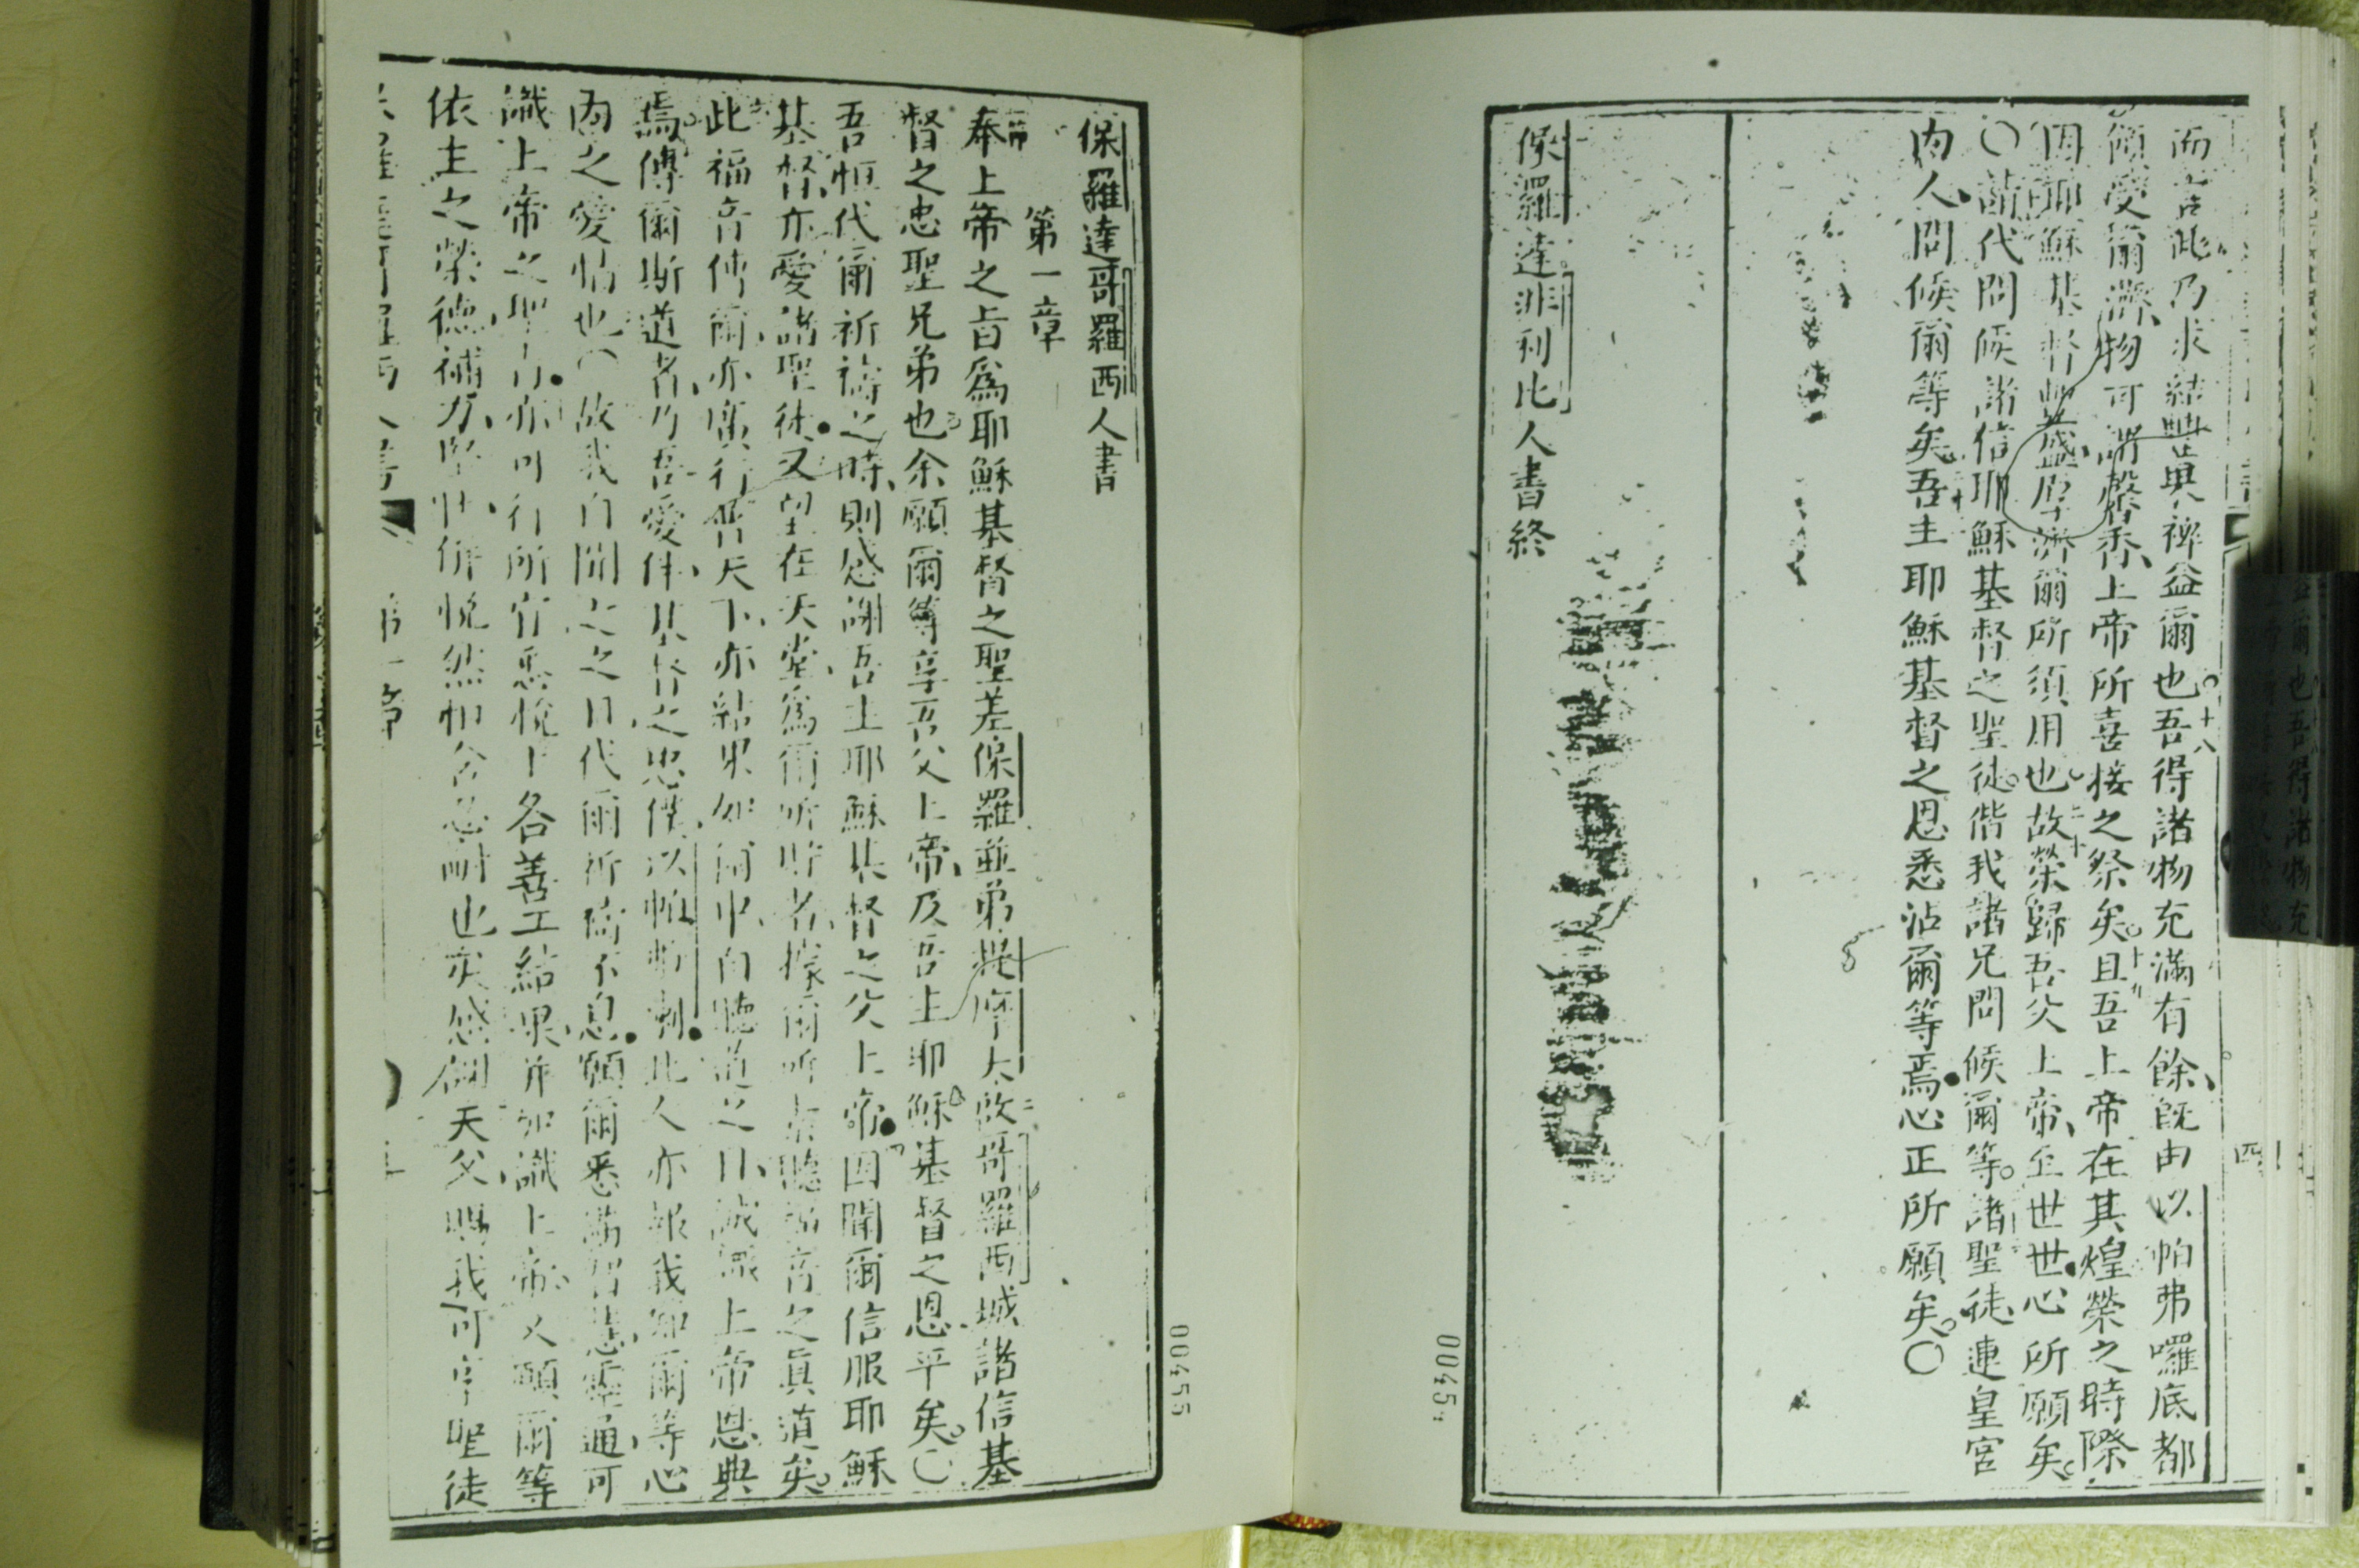 而言此乃求結豐與裨益爾也吾得諸物充滿有餘旣由以帕弗囉底都
十八
傾愛爾濟物可謂馨香上帝所喜接之祭矣且吾上帝在其煌榮之時際
十九
因耶穌基督豐盛厚濟爾所須用也故榮歸吾父上帝至世世心所願矣
二十
〇請代問候諸信耶穌基督之聖徒偕我諸兄問候爾等諸聖徒連皇宮
內人問候爾等矣吾主耶穌基督之恩悉沾爾等焉心正所願矣〇
保羅達非利比人書終
四
0045
保羅達哥羅西人書
第一章
奉上帝之旨爲耶穌基督之聖差保羅並弟提摩太啟哥羅西城諸信基
督之忠聖兄弟也余願爾等享吾父上帝及吾主耶穌基督之恩平矣〇
吾恒代爾祈禱之時則感謝吾主耶穌基督之父上帝因聞爾信服耶穌
基督亦愛諸聖徒又望在天堂爲爾所貯者據爾所去聽福音之眞道矣
此福音傳爾亦廣行普天下亦結果如爾中自聽道之日誠識上帝恩典
焉傳爾斯道者乃吾愛伴基督之忠僕以帕弗喇此人亦報我知爾等心
內之愛情也〇故我自聞之之日代爾祈禱不息願爾悉滿智慧靈通可
識上帝之聖旨亦可行所官悉悅上各善工結果并加識上帝又願爾等
依主之榮德補力堅壯併悅然恒含忍耐也矣感謝天父賜我可享聖徒
第一章
00455